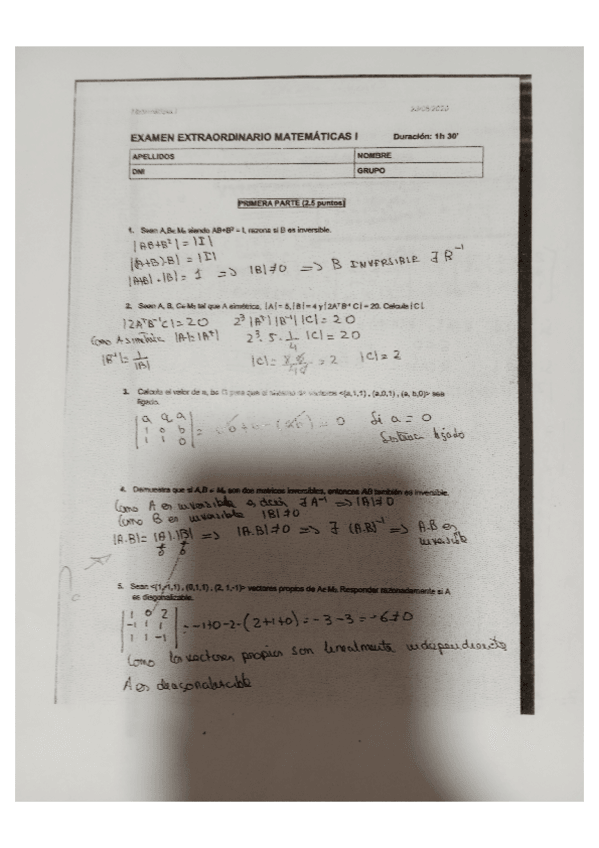 Matemáticas I
EXAMEN EXTRAORDINARIO MATEMÁTICAS I Duración: 1h 30'
APELLIDOS NOMBRE
DNI GRUPO
PRIMERA PARTE (2,5 puntos)
1. Sean A,B∈ M₃ siendo AB+B² = I, razona si B es inversible.
|AB+B²| = |I|
|(A+B)·B| = |I|
|A+B|·|B| = 1 => |B|≠0 => B INVERSIBLE ∃ B⁻¹
2. Sean A, B, C∈ M₃ tal que A simétrica, |A| = 5, |B| = 4 y |2AᵀB⁻¹C| = 20. Calcula |C|.
|2AᵀB⁻¹C| = 20 2³ |Aᵀ| |B⁻¹| |C| = 20
Como A simétrica |A|=|Aᵀ| 2³·5·1/4 |C| = 20
|B⁻¹| = 1/|B| |C| = = 2 |C| = 2
3. Calcula el valor de a, b∈ para que el sistema de vectores <(a,1,1), (a,0,1), (a, b,0)> sea
ligado.
|a a a|
|1 0 b| = = 0 Si a = 0
|1 1 0| Sistema ligado
4. Demuestra que si A,B ∈ M₃ son dos matrices inversibles, entonces AB también es inversible.
Como A es inversible es decir ∃ A⁻¹ => |A|≠0
Como B es inversible |B|≠0
|A·B| = |A|·|B| => |A·B|≠0 => ∃ (A·B)⁻¹ => A·B es
inversible
5. Sean <(1,-1,1), (0,1,1), (2, 1,-1)> vectores propios de A∈ M₃ Responder razonadamente si A
es diagonalizable.
|1 0 2|
|-1 1 1| = -1+0-2-(2+1+0) = -3-3 = -6≠0
|1 1 -1|
Como los vectores propios son linealmente independientes
A es diagonalizable